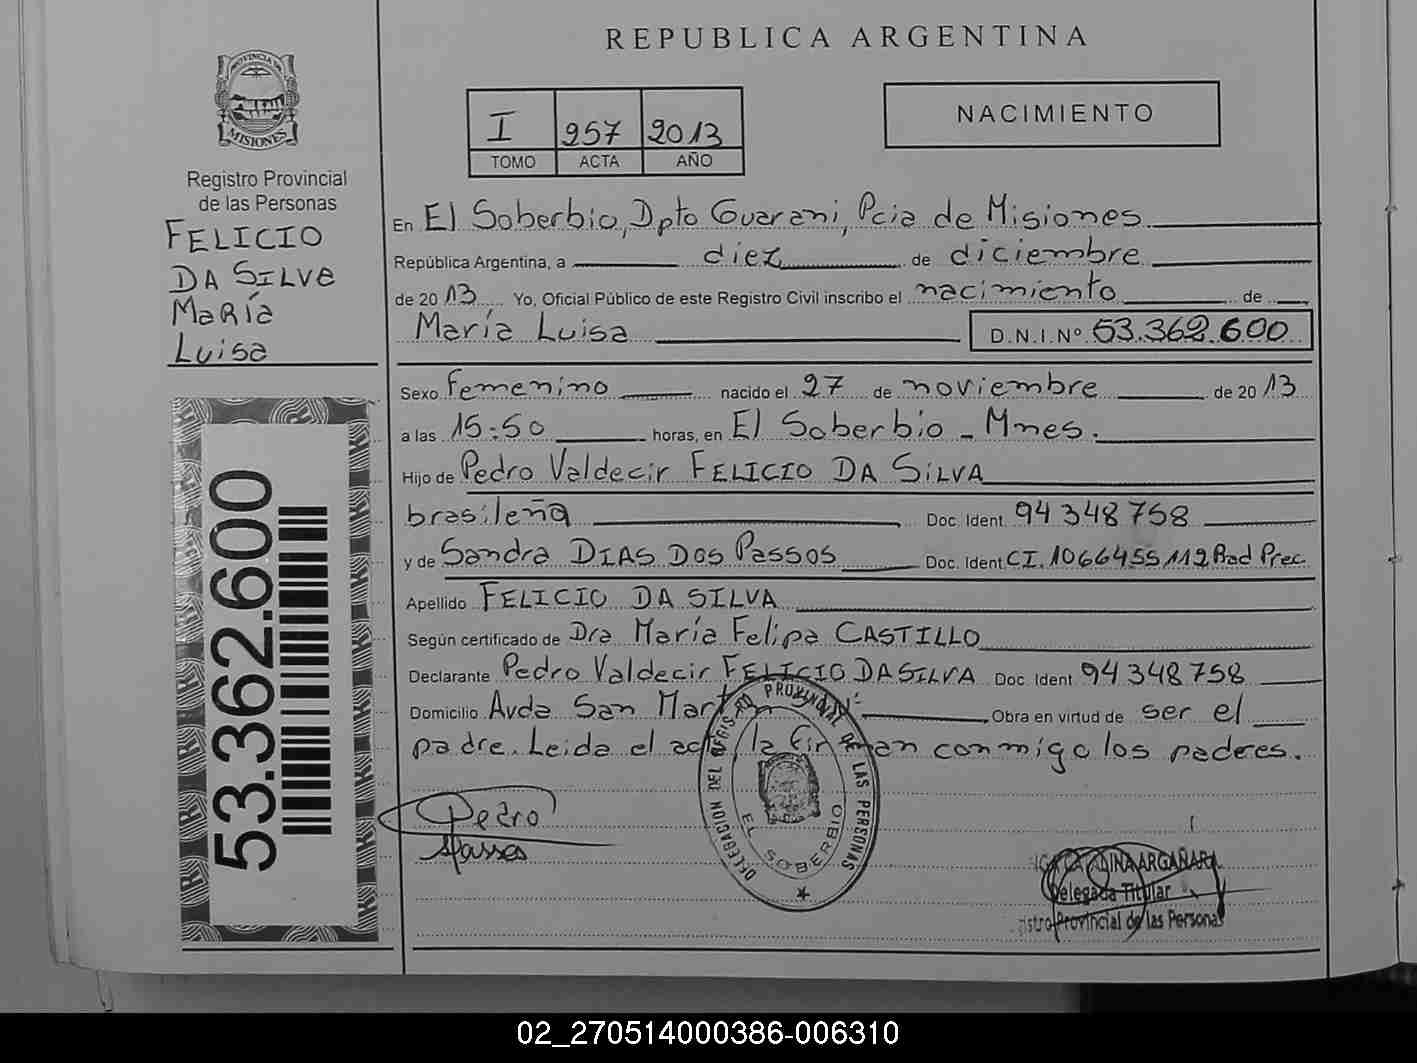 REPUBLICA ARGENTINA
PROVINCIA DE MISIONES
Registro Provincial
de las Personas
FELICIO
DA SILVe
María
Luisa
53.362.600
I 257 2013
TOMO ACTA AÑO
NACIMIENTO
En El Soberbio, Dpto Guarani, Pcia de Misiones
República Argentina, a diez de diciembre
de 2013 Yo, Oficial Público de este Registro Civil inscribo el nacimiento de
María Luisa D.N.I.Nº 53.362.600
Sexo femenino nacido el 27 de noviembre de 2013
a las 15:50 horas, en El Soberbio - Mnes.
Hijo de Pedro Valdecir FELICIO DA SILVA
brasileña Doc. Ident. 94 348 758
y de Sandra DIAS DOS PASSOS Doc. Ident. CI. 1066455112 Rad Prec.
Apellido FELICIO DA SILVA
Según certificado de Dra María Felipa CASTILLO
Declarante Pedro Valdecir FELICIO DA SILVA Doc. Ident 94 348 758
Domicilio Avda San Martín Obra en virtud de ser el
padre. Leida el acta la firman conmigo los padres.
Pedro
DELEGACION DEL REGISTRO PROVINCIAL DE LAS PERSONAS
EL SOBERBIO
ARGAÑARA
Delegada Titular
Provincial de las Personas
02_270514000386-006310